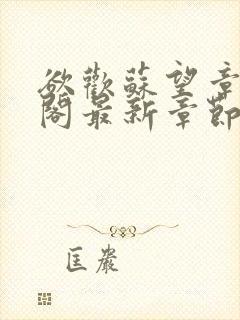 欲歡蘇望章
閣最新章節
匡嚴